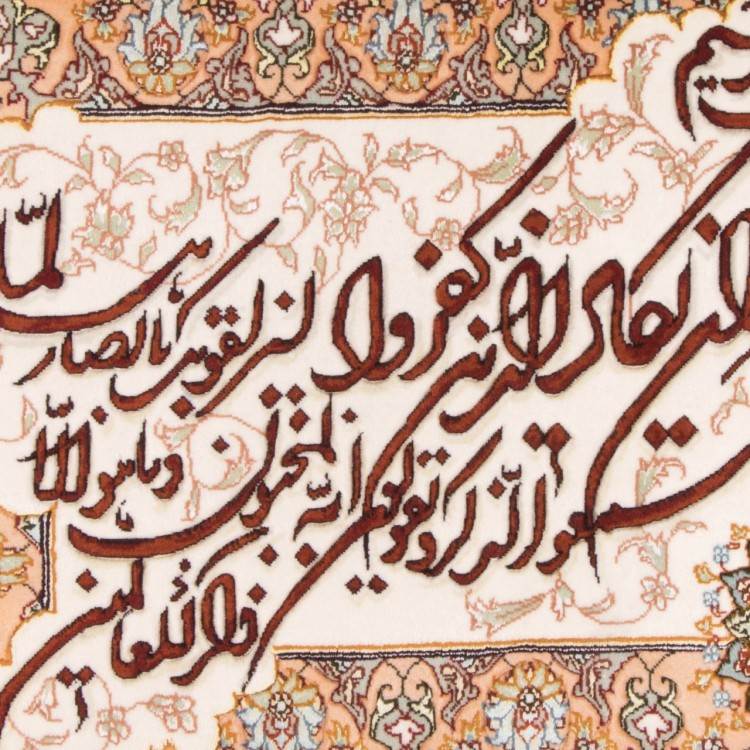 وان یکاد الذین کفروا لیزلقونک بابصارهم لما
سمعوا الذکر و یقولون انه لمجنون وما هو الا
ذکر للعالمین